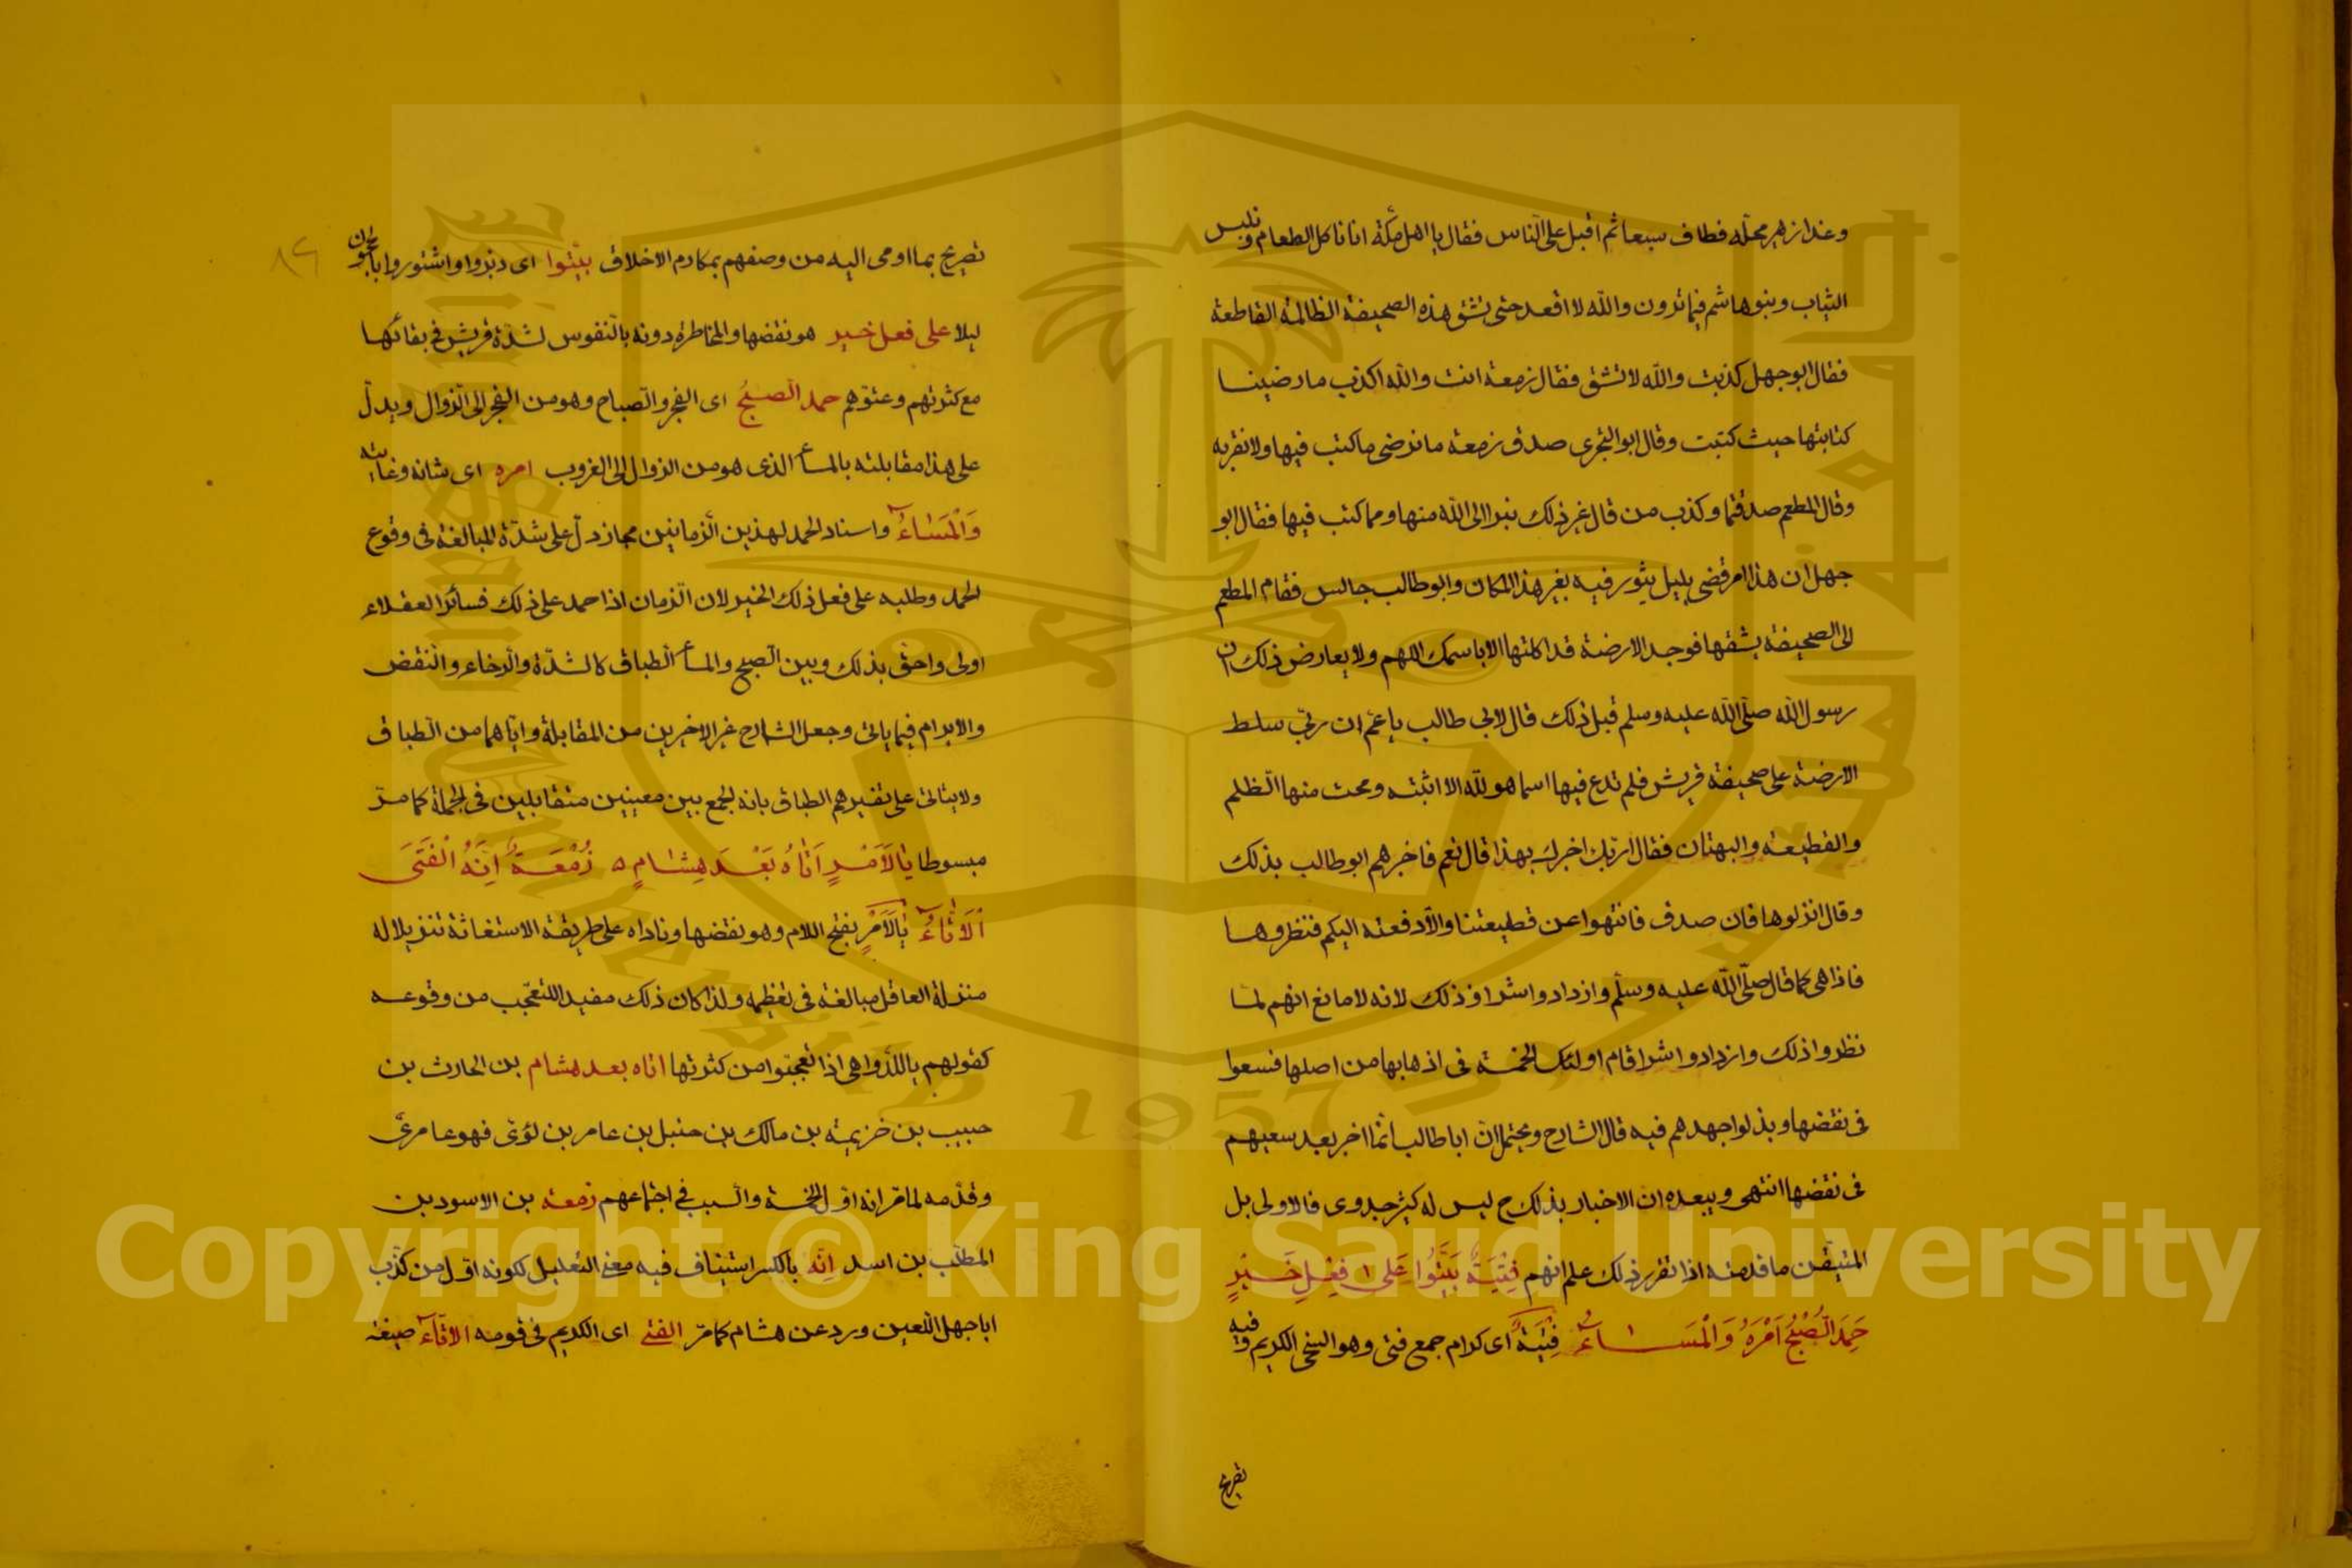 وغدا زهير محلّه فطاف سبعا ثم اقبل على النّاس فقال يا اهل مكّة انا ناكل الطعام ونلبس
الثياب وبنو هاشم فيما ترون والله لا اقعد حتى تشق هذه الصحيفة الظالمة القاطعة
فقال ابو جهل كذبت والله لا تشق فقال زمعة انت والله اكذب ما رضينا
كتابتها حيث كتبت وقال ابو البختري صدق زمعة ما نرضى ما كتب فيها ولا نقر به
وقال المطعم صدقتما وكذب من قال غير ذلك نبرا الى الله منها ومما كتب فيها فقال ابو
جهل ان هذا امر قضي بليل يثور فيه بغير هذا المكان وابو طالب جالس فقام المطعم
الى الصحيفة يشقها فوجد الارضة قد اكلتها الا باسمك اللهم ولا يعارض ذلك ان
رسول الله صلّى الله عليه وسلم قبل ذلك قال لابي طالب يا عم ان ربّي سلط
الارضة على صحيفة قريش فلم تدع فيها اسما هو لله الا اثبته ومحت منها الظلم
والقطيعة والبهتان فقال اربّك اخبرك بهذا قال نعم فاخبرهم ابو طالب بذلك
وقال انزلوها فان صدق فانتهوا عن قطيعتنا والّا دفعته اليكم فنظروها
فاذا هي كما قال صلّى الله عليه وسلّم وازدادوا شرا وذلك لانه لا مانع انهم لمّا
نظروا ذلك وازدادوا شرا قام اولئك الخمسة في اذهابها من اصلها فسعوا
في نقضها وبذلوا جهدهم فيه قال الشارح ويحتمل انّ ابا طالب انّما اخبر بعد سعيهم
في نقضها انتهى ويبعده ان الاخبار بذلك ح ليس له كثير جدوى فالاولى بل
المتيقّن ما قدمته اذا تقرر ذلك علم انهم فِتْيَةٌ بَيَّتُوا عَلى فِعْلِ خَيْرٍ
حَمِدَ الصُّبْحُ اَمْرَهُ وَالْمَسَاءُ فِتْيَةٌ اى كرام جمع فتى وهو السخي الكريم وفيه
تصريح
تصريح بما اومى اليه من وصفهم بمكارم الاخلاق بيّتوا اى دبّروا واشتوروا بالحجون
ليلا على فعل خير هو نقضها والمخاطرة دونه بالنفوس لشدّة قريش في بقائها
مع كثرتهم وعتوّهم حمد الصبحُ اى الفجر والصباح وهو من الفجر الى الزوال ويدلّ
على هذا مقابلته بالمسا الذى هو من الزوال الى الغروب امره اى شانه وغايته
وَالْمَسَاءُ واسناد الحمد لهذين الزمانين مجاز دلّ على شدّة المبالغة فى وقوع
الحمد وطلبه على فعل ذلك الخير لان الزمان اذا حمد على ذلك فسائر العقلاء
اولى واحق بذلك وبين الصبح والمسا الطباق كالشدّة والرخاء والنقض
والابرام فيما ياتي وجعل الشارح غير الاخيرين من المقابلة وايّاهما من الطباق
ولا يتاتى على تفسيرهم الطباق بانه الجمع بين معنيين متقابلين فى الجملة كما مرّ
مبسوطا يالَاَمْرٍ اَتَاهُ بَعْدَ هِشَامٍ ه زَمْعَةٌ اِنَّهُ الْفَتَى
اَلْاَتَّاءُ يالَاَمْرٍ بفتح اللام وهو نقضها وناداه على طريقة الاستغاثة تنزيلا له
منزلة العاقل مبالغة فى تعظيمه ولذا كان ذلك مفيد اللتعجّب من وقوعه
كقولهم ياللدّواهى اذا تعجّبوا من كثرتها اتاه بعد هشام بن الحارث بن
حبيب بن خزيمة بن مالك بن حنبل بن عامر بن لؤى فهو عامرىّ
وقدّمه لما مّر انه اوّل الخمسة والسبب في اجتماعهم زمعة بن الاسود بن
المطلب بن اسد اِنّهُ بالكسر استيناف فيه معنى التعليل لكونه اوّل من كذّب
ابا جهل اللعين ورد عن هشام كما مّر الفتى اى الكريم فى قومه الاتّاءُ صيغة
٨٦
Copyright © King Saud University
1957